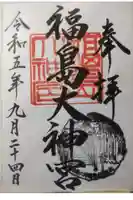 奉拝
福島大神宮
令和五年九月二十四日